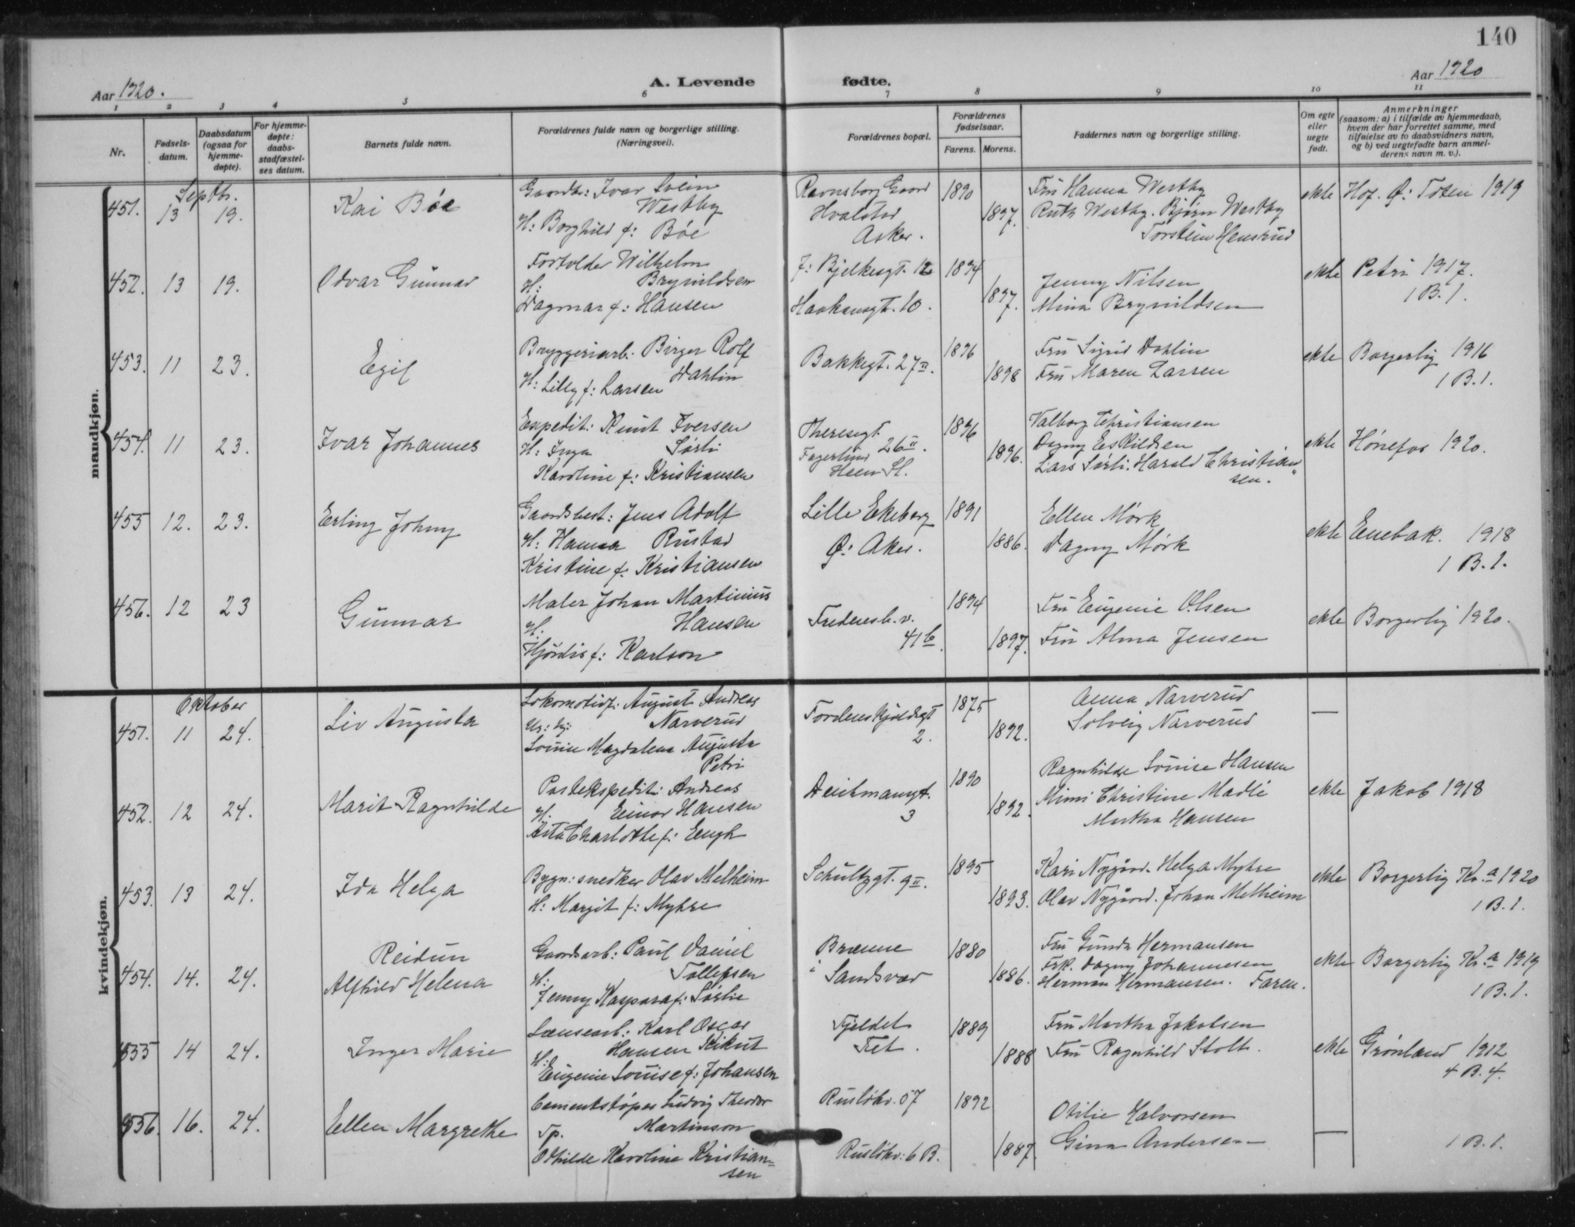 140
Aar 1920.
A. Levende fødte.
Aar 1920
1 2 3 4 5 6 7 8 9 10 11
Nr.
Fødsels-
datum.
Daabsdatum
(ogsaa for
hjemme-
døpte).
For hjemme-
døpte:
daabs-
stadfæstel-
ses datum.
Barnets fulde navn.
Forældrenes fulde navn og borgerlige stilling.
(Næringsvei).
Forældrenes bopæl.
Forældrenes
fødselsaar.
Farens. Morens.
Faddernes navn og borgerlige stilling.
Om egte
eller
uegte
født.
Anmerkninger
(saasom: a) i tilfælde av hjemmedaab,
hvem der har forrettet samme, med
tilføielse av to daabsvidners navn,
og b) ved uegtefødte barn anmel-
derens navn m. v.).
mandkjøn.
Septbr.
451. 13 19. Kai Bøe
Gaardbr: Ivar Svein
Westby
H: Borghild f: Bøe
Ravnsborg Gaard
Hvalstad
Asker.
1890
1897.
Fru Hanna Westby
Ruth Westby. Bjørn Westby
Torstein Hensrud
ekte Hof. Ø: Toten 1919
452. 13 19. Odvar Gunnar
Fortolder Wilhelm
H: Brynildsen
Dagmar f: Hansen
J: Bjelkesgt. 12
Haakonsgt. 10.
1894
1897.
Jenny Nilsen
Mina Brynildsen
ekte Petri 1917.
1 B. 1.
453. 11 23. Egil
Bryggeriarb. Birger Rolf
Dahlin
H: Lilly f: Larsen
Bakkegt. 27 II.
1896
1898
Fru Sigrid Dahlin
Fru Maren Larsen
ekte Borgerlig 1916
1 B. 1.
454. 11 23. Ivar Johannes
Expedit: Knut Iversen
H: Inga Sørli
Karoline f: Kristiansen
Theresegt.
26 II.
Fagerlund
Heen St.
1896
1896.
Valborg Christiansen
Dagny Eskildsen
Lars Sørli. Harald Christian-
sen.
ekte Hønefos 1920.
455 12. 23. Erling Johny
Gaardsbest: Jens Adolf
H: Hanna Rustad
Kristine f: Kristiansen
Lille Ekeberg
Ø: Aker.
1891
1886.
Ellen Mørk
Dagny Mørk
ekte Enebak. 1918
1 B. 1.
456. 12 23 Gunnar
Maler Johan Martinius
H: Hansen
Hjørdis f: Karlson
Fredensb. v.
41 b.
1894
1897.
Fru Eugenie Olsen
Fru Alma Jensen
ekte Borgerlig 1920.
kvindekjøn.
Oktober
451. 11 24. Liv Augusta
Lokomotivf: August Andreas
Narverud
Lovise Magdalena Augusta
Petri
Tordenskjoldsgt
2.
1875
1892.
Anna Narverud
Solveig Narverud
—
452. 12 24. Marit Ragnhilde
Postekspedit: Andreas
H: Einar Hansen
Asta Charlotte f: Engh
3
1890
1892.
Ragnhilde Lovise Hansen
Mimi Christine Madli
Martha Hansen
ekte Jakob 1918
453. 13 24. Ida Helga
Bygn: snedker Olav Melheim
H: Margit f: Myhre
Schultzgt. 9 II.
1895
1893.
Kari Nygård. Helga Myhre
Olav Nygård. Johan Melheim
ekte Borgerlig Kr.a 1920
1 B. 1.
454. 14. 24. Reidun
Alfhild Helena
Gaardsarb: Paul Daniel
H: Tollefsen
Jenny Kaspara f: Sørlie
Brænne
i Sandsvær
1880
1886.
Fru Gunda Hermansen
Frk. Dagny Johannesen
Herman Hermansen. Faren.
ekte Borgerlig Kr.a 1919
1 B. 1.
455 14 24. Inger Marie
Lænsearb: Karl Oscar
H: Hansen Kikut
Eugenie Lovise f: Johansen
Fjeldet
Fet.
1889
1888
Fru Martha Jakobsen
Fru Ragnhild Stolt.
ekte Grønland 1912
4 B. 4.
456. 16. 24. Ellen Margrethe
Cementstøper Ludvig Theodor
Martinson
Othilde Karoline Kristian-
sen
Rusløkv. 07
Rusløkv: 6 B.
1892
1887.
Otilie Halvorsen
Gina Andersen
—
1 B. 1.